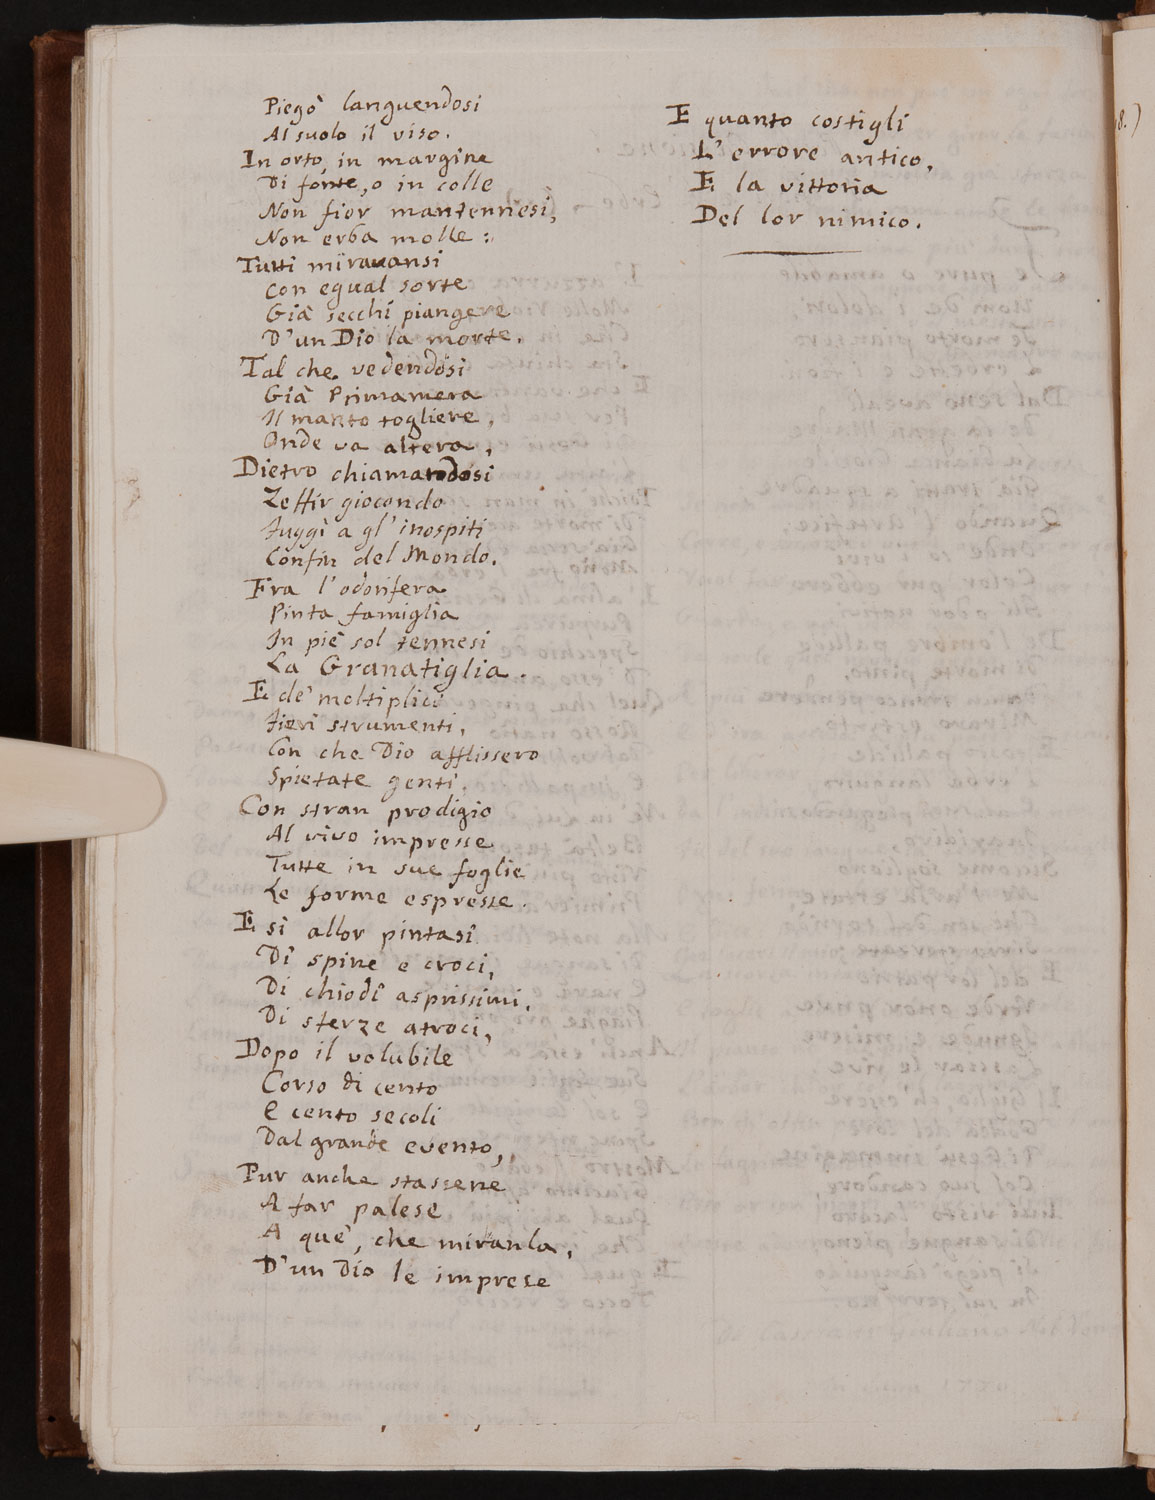 Piegò languendosi
Al suolo il viso.
In orto, in margine
Di fonte, o in colle
Non fior mantennesi,
Non erba molle:
Tutti miravansi
Con egual sorte
Già secchi piangere
D'un Dio la morte.
Tal che vedendosi
Già Primavera
Il manto togliere,
Onde va altera,
Dietro chiamandosi
Zeffir giocondo
Fuggì a gl'inospiti
Confin del Mondo.
Fra l'odorifera
Pinta famiglia
In piè sol tennesi
La Granatiglia.
E de' moltiplici
Fieri strumenti,
Con che Dio afflissero
Spietate genti,
Con stran prodigio
Al vivo impresse
Tutte in sue foglie
Le forme espresse.
E sì allor pintasi
Di spine e croci,
Di chiodi asprissimi,
Di sferze atroci,
Dopo il volubile
Corso di cento
E cento secoli
Dal grande evento,
Pur anche stassene
A far palese
A que', che miranla,
D'un Dio le imprese
E quanto costigli
L'errore antico,
E la vittoria
Del lor nimico.
8.)